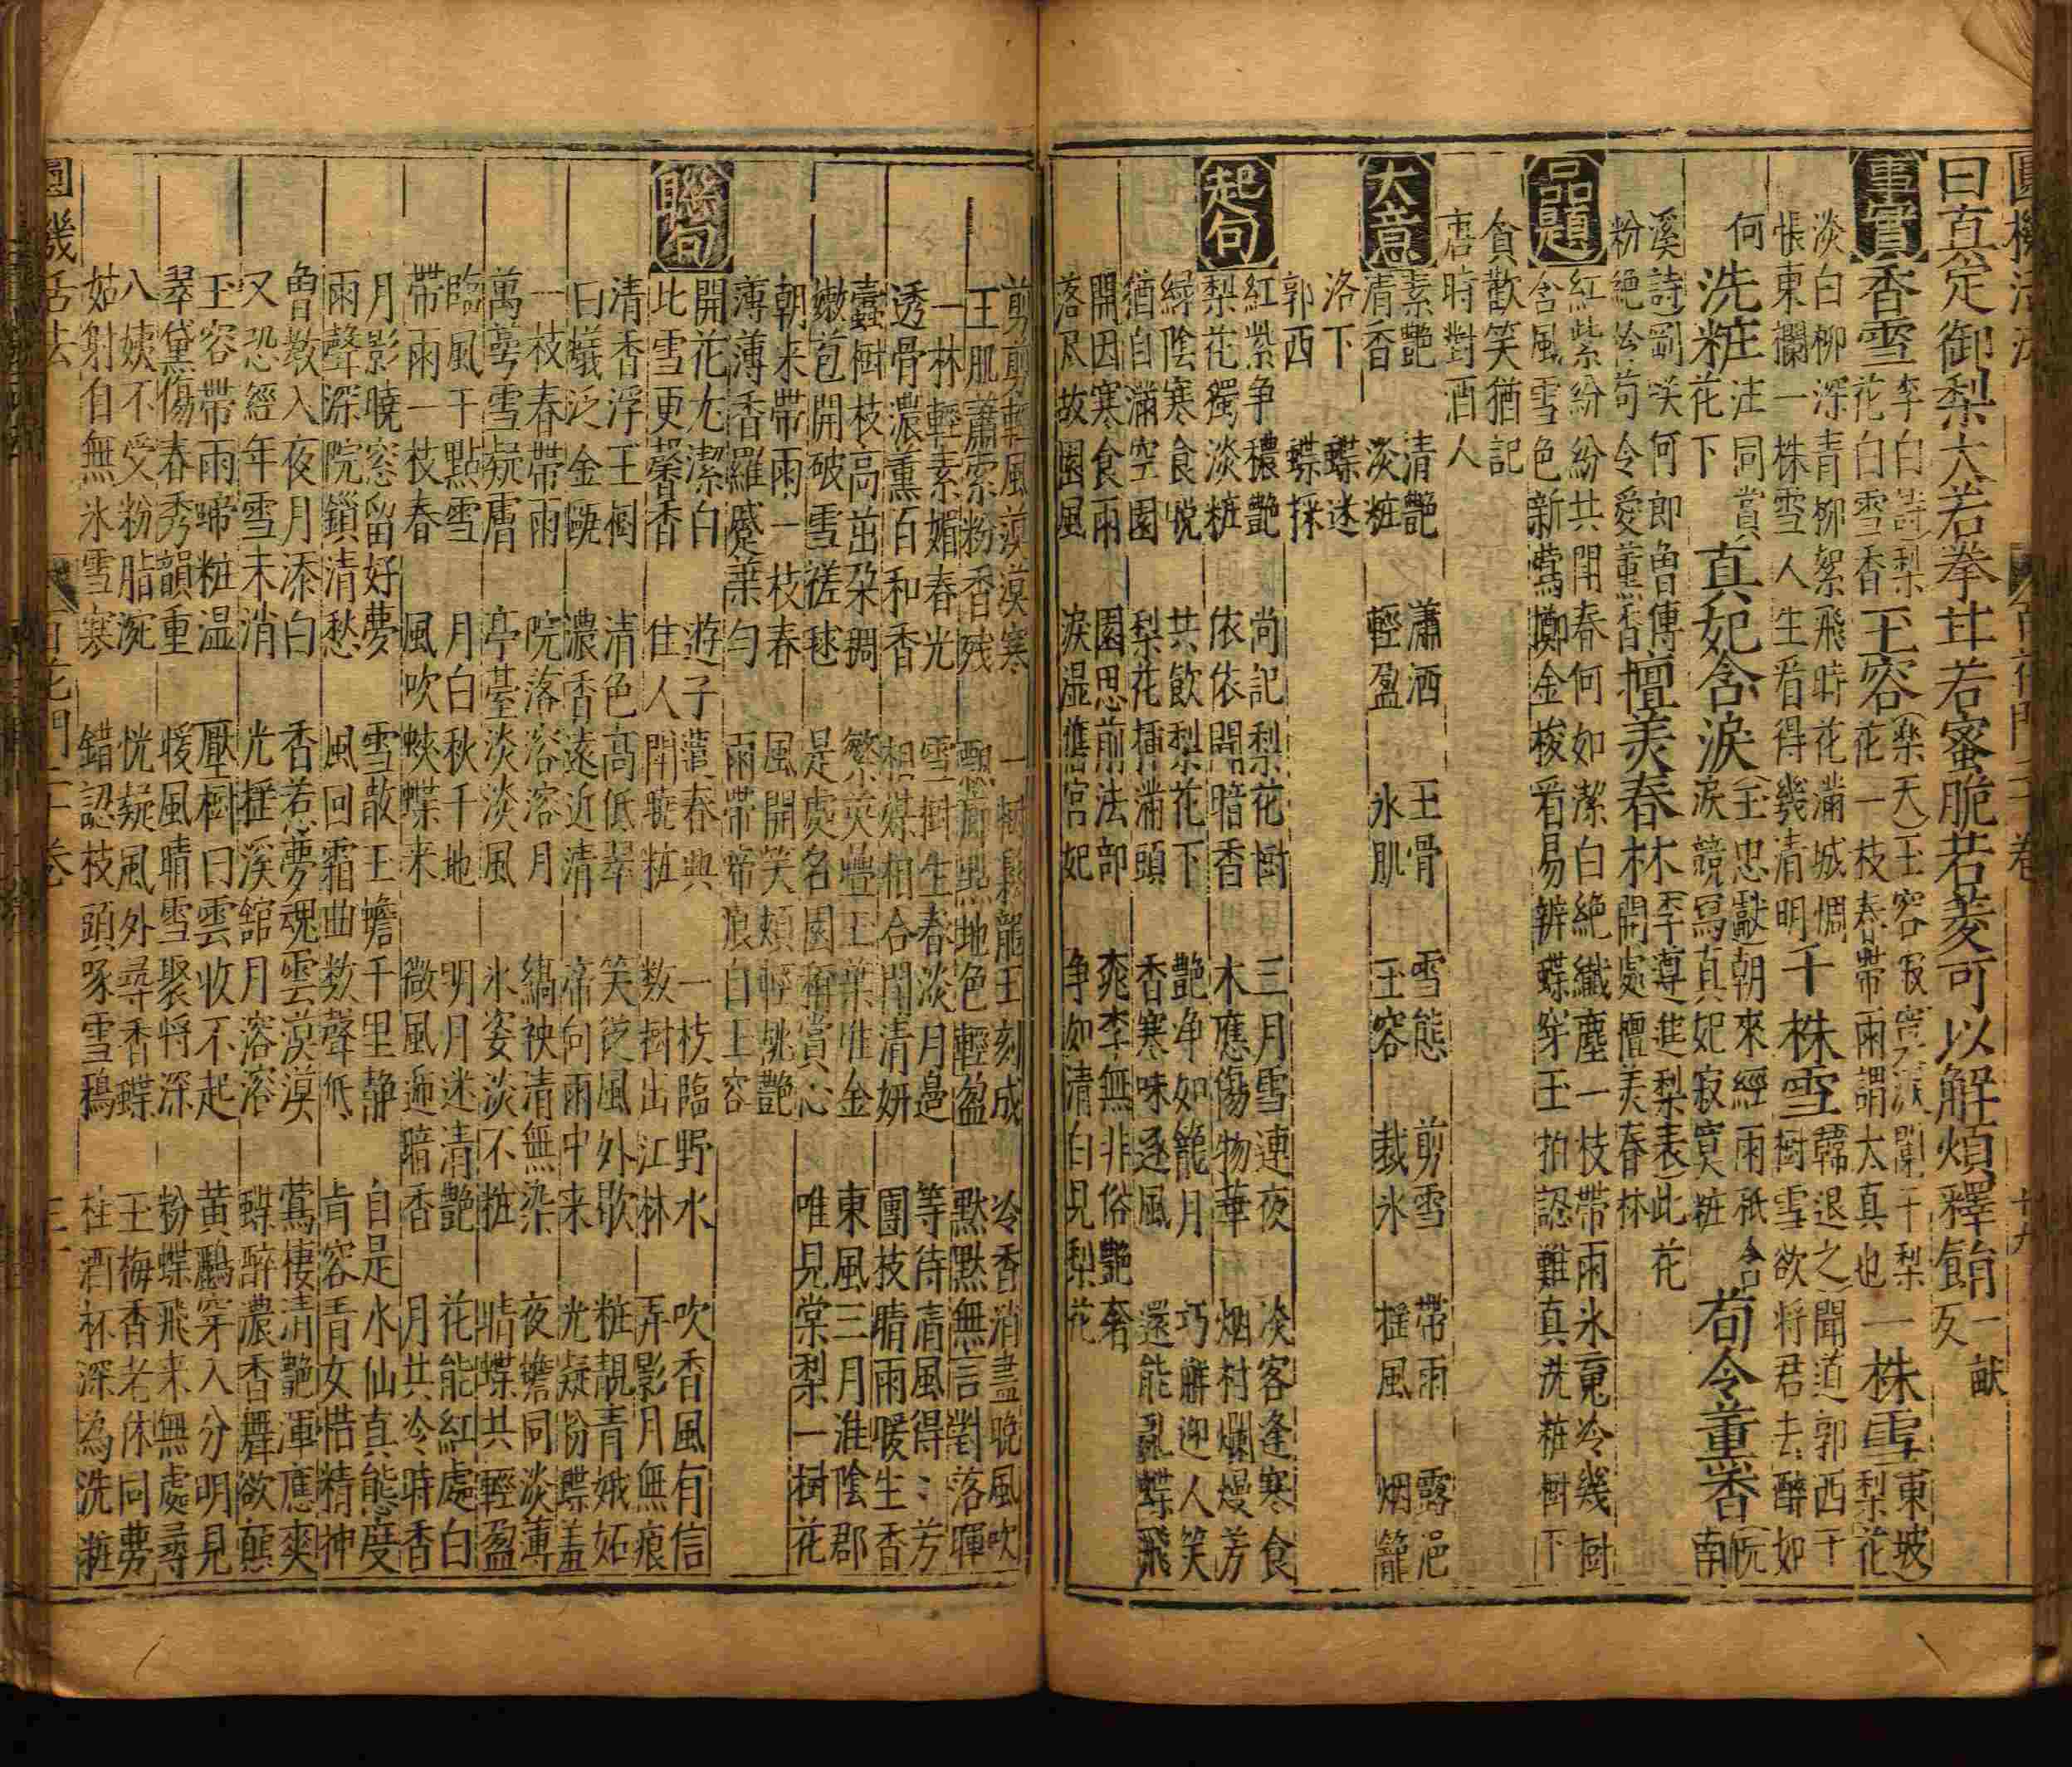 曰真定御梨大若拳甘若蜜脆若菱可以解煩釋餶
一献
反
事實
香雪
李白詩梨
花白雪香
玉容
樂天玉容寂寞淚闌干梨
花一枝春帶雨謂太真也
一株雪
東坡
梨花
淡白柳深青柳絮飛時花滿城惆
悵東欄一株雪人生看得幾清明
千株雪
韓退之聞道郭西千
樹雪欲將君去醉如
何
洗粧
洼同賞
花下
真妃含淚
王忠獻朝來經雨
淚競寫真妃寂寞粧
荀令薰香
南
溪詩劉咲何郎曾傅
粉絕 荀令愛薰香
擅美春林
李遵進梨表此花
開處擅美春林
品題
紅紫紛紛共閗春何如潔白絕纖塵一枝帶雨氷寛冷幾樹
含風雪色新鶯擲金梭看易辨蝶穿玉拍認難真洗粧樹下
貪歡笑猶記
唐時對酒人
大意
素艷 清艷 瀟洒 玉骨 雪態 剪雪 帶雨 露浥
清香 淡粧 輕盈 氷肌 玉容 裁氷 搖風 烟籠
洛下 蝶迷
郭西 蝶採
起句
紅紫争穠艷 尚記梨花樹 三月雪連夜 淡客逢寒食
梨花獨淡粧 依依閗暗香 木應傷物華 烟村爛熳芳
緑陰寒食悦 共飲梨花下 艷净如籠月 巧解迎人笑
猶自滿空園 梨花插滿頭 香寒味逐風 還能亂蝶飛
開因寒食雨 園思前法部 桃李無非俗艷奢
落尽故園風 淚湿舊宮妃 争如清白見梨花
剪剪輕風漠漠寒 一樹 龍玉刻成 冷香消盡晚風吹
玉肌蕭索粉香残 點地色輕盈 黙黙無言對落暉
一林輕素媚春光 雪樹生春淡月邊 等待清風得〻芳
透骨濃薰百和香 相媒相合閗清妍 團枝晴雨暖生香
蠹樹枝高茁朶稠 繁英疊玉葉堆金 東風三月淮陰郡
嫩苞開破雪搓毬 是處名園稱賞心 唯見棠梨一樹花
朝来帶雨一枝春 風開笑頰輕桃艷
薄薄香羅蹙葉勻 雨帶啼痕白玉容
聯句
開花尤潔白 遊子蘧春典 一枝臨野水 吹香風有信
此雪更馨香 住人閗曉粧 数樹出江林 弄影月無痕
清香浮玉樹 清色高低翠 笑從風外歇 粧靚青娥妬
曰蟻泛金甌 濃香遠近清 啼向雨中来 光凝粉蝶羞
一枝春帶雨 院落溶溶月 縞袂清無染 夜蟾同淡薄
萬蕚雪凝膚 亭臺淡淡風 氷姿淡不粧 晴蝶共輕盈
臨風千點雪 月白秋千地 明月迷清艷 花能紅處白
帶雨一枝春 風吹蛺蝶来 微風逓暗香 月共冷時香
月影曉窓留好夢 雪散玉蟾千里静 自是水仙真態度
雨聲深院鎖清愁 風回霜曲数聲低 肯容青女惜精神
曾教入夜月添白 香若夢魂雲漠漠 鶯棲清艷渾應爽
又恐經年雪未消 光摇溪舘月溶溶 蝶醉濃香舞欲顛
玉容帶雨啼粧温 壓樹曰雲收不起 黃鸝穿入分明見
翠黛傷春秀韻重 暖風晴雪聚将深 粉蝶飛来無處尋
八姨不受粉脂涴 恍疑風外尋香蝶 玉梅香老休同夢
姑射自無氷雪寒 錯認枝頭啄雪鴉 柱酒杯深為洗粧
圓機活法 百花門二十卷